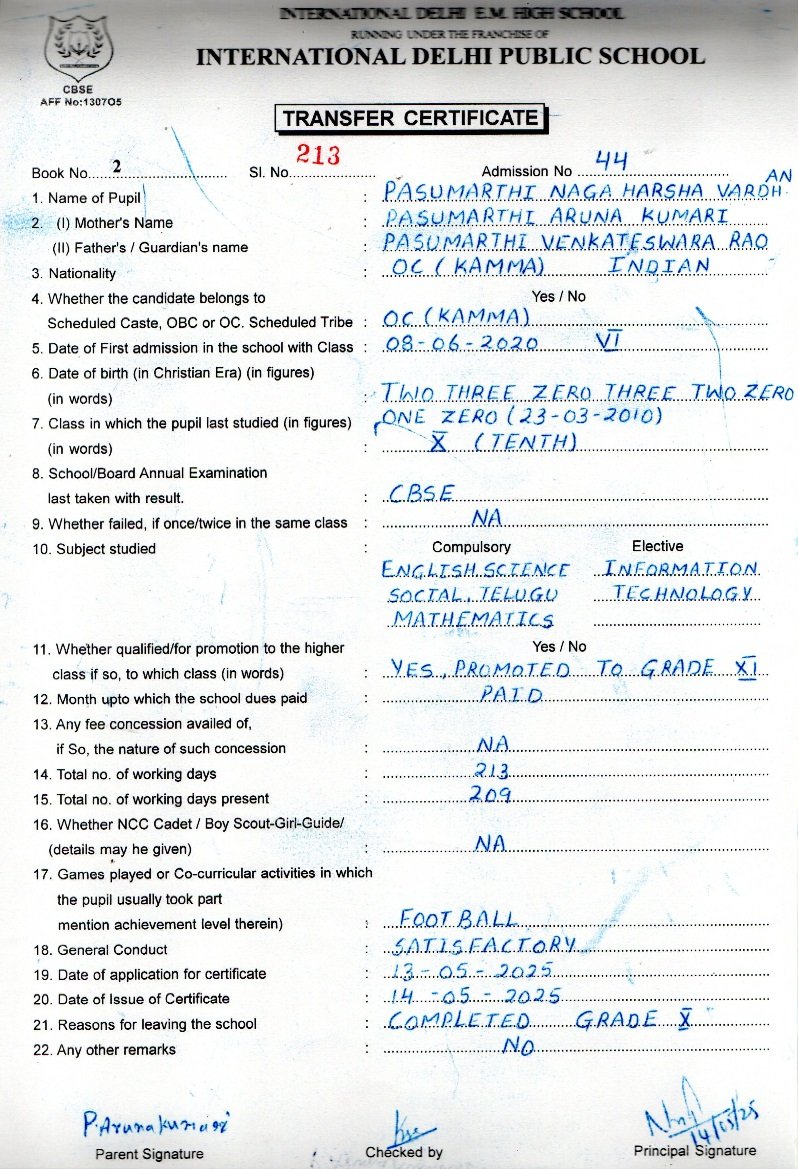 INTERNATIONAL DELHI E.M. HIGH SCHOOL
RUNNING UNDER THE FRANCHISE OF
INTERNATIONAL DELHI PUBLIC SCHOOL
CBSE
AFF No:130705
TRANSFER CERTIFICATE
Book No. 2 Sl. No. 213 Admission No 44
1. Name of Pupil : PASUMARTHI NAGA HARSHA VARDHAN
2. (I) Mother's Name : PASUMARTHI ARUNA KUMARI
(II) Father's / Guardian's name : PASUMARTHI VENKATESWARA RAO
3. Nationality : OC (KAMMA) INDIAN
4. Whether the candidate belongs to Yes / No
Scheduled Caste, OBC or OC. Scheduled Tribe : OC (KAMMA)
5. Date of First admission in the school with Class : 08-06-2020 VI
6. Date of birth (in Christian Era) (in figures)
(in words) : TWO THREE ZERO THREE TWO ZERO
7. Class in which the pupil last studied (in figures) ONE ZERO (23-03-2010)
(in words) : X (TENTH)
8. School/Board Annual Examination
last taken with result. : CBSE
9. Whether failed, if once/twice in the same class : NA
10. Subject studied : Compulsory Elective
ENGLISH SCIENCE INFORMATION
SOCIAL, TELUGU TECHNOLOGY
MATHEMATICS
11. Whether qualified/for promotion to the higher Yes / No
class if so, to which class (in words) : YES, PROMOTED TO GRADE XI
12. Month upto which the school dues paid : PAID
13. Any fee concession availed of,
if So, the nature of such concession : NA
14. Total no. of working days : 213
15. Total no. of working days present : 209
16. Whether NCC Cadet / Boy Scout-Girl-Guide/
(details may he given) : NA
17. Games played or Co-curricular activities in which
the pupil usually took part
mention achievement level therein) : FOOTBALL
18. General Conduct : SATISFACTORY
19. Date of application for certificate : 13-05-2025
20. Date of Issue of Certificate : 14-05-2025
21. Reasons for leaving the school : COMPLETED GRADE X
22. Any other remarks : NO
P. Aruna kumari
14/05/25
Parent Signature Checked by Principal Signature